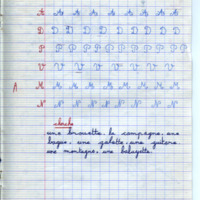 A A A A A A A A
D D D D D D D D
P P P P P P P P P P
V V V V V V V
A M M M M M M M
N N N N N N N
cherche
une brouette, la campagne, une
bague, une galette, une guitare
une montagne, une baguette.